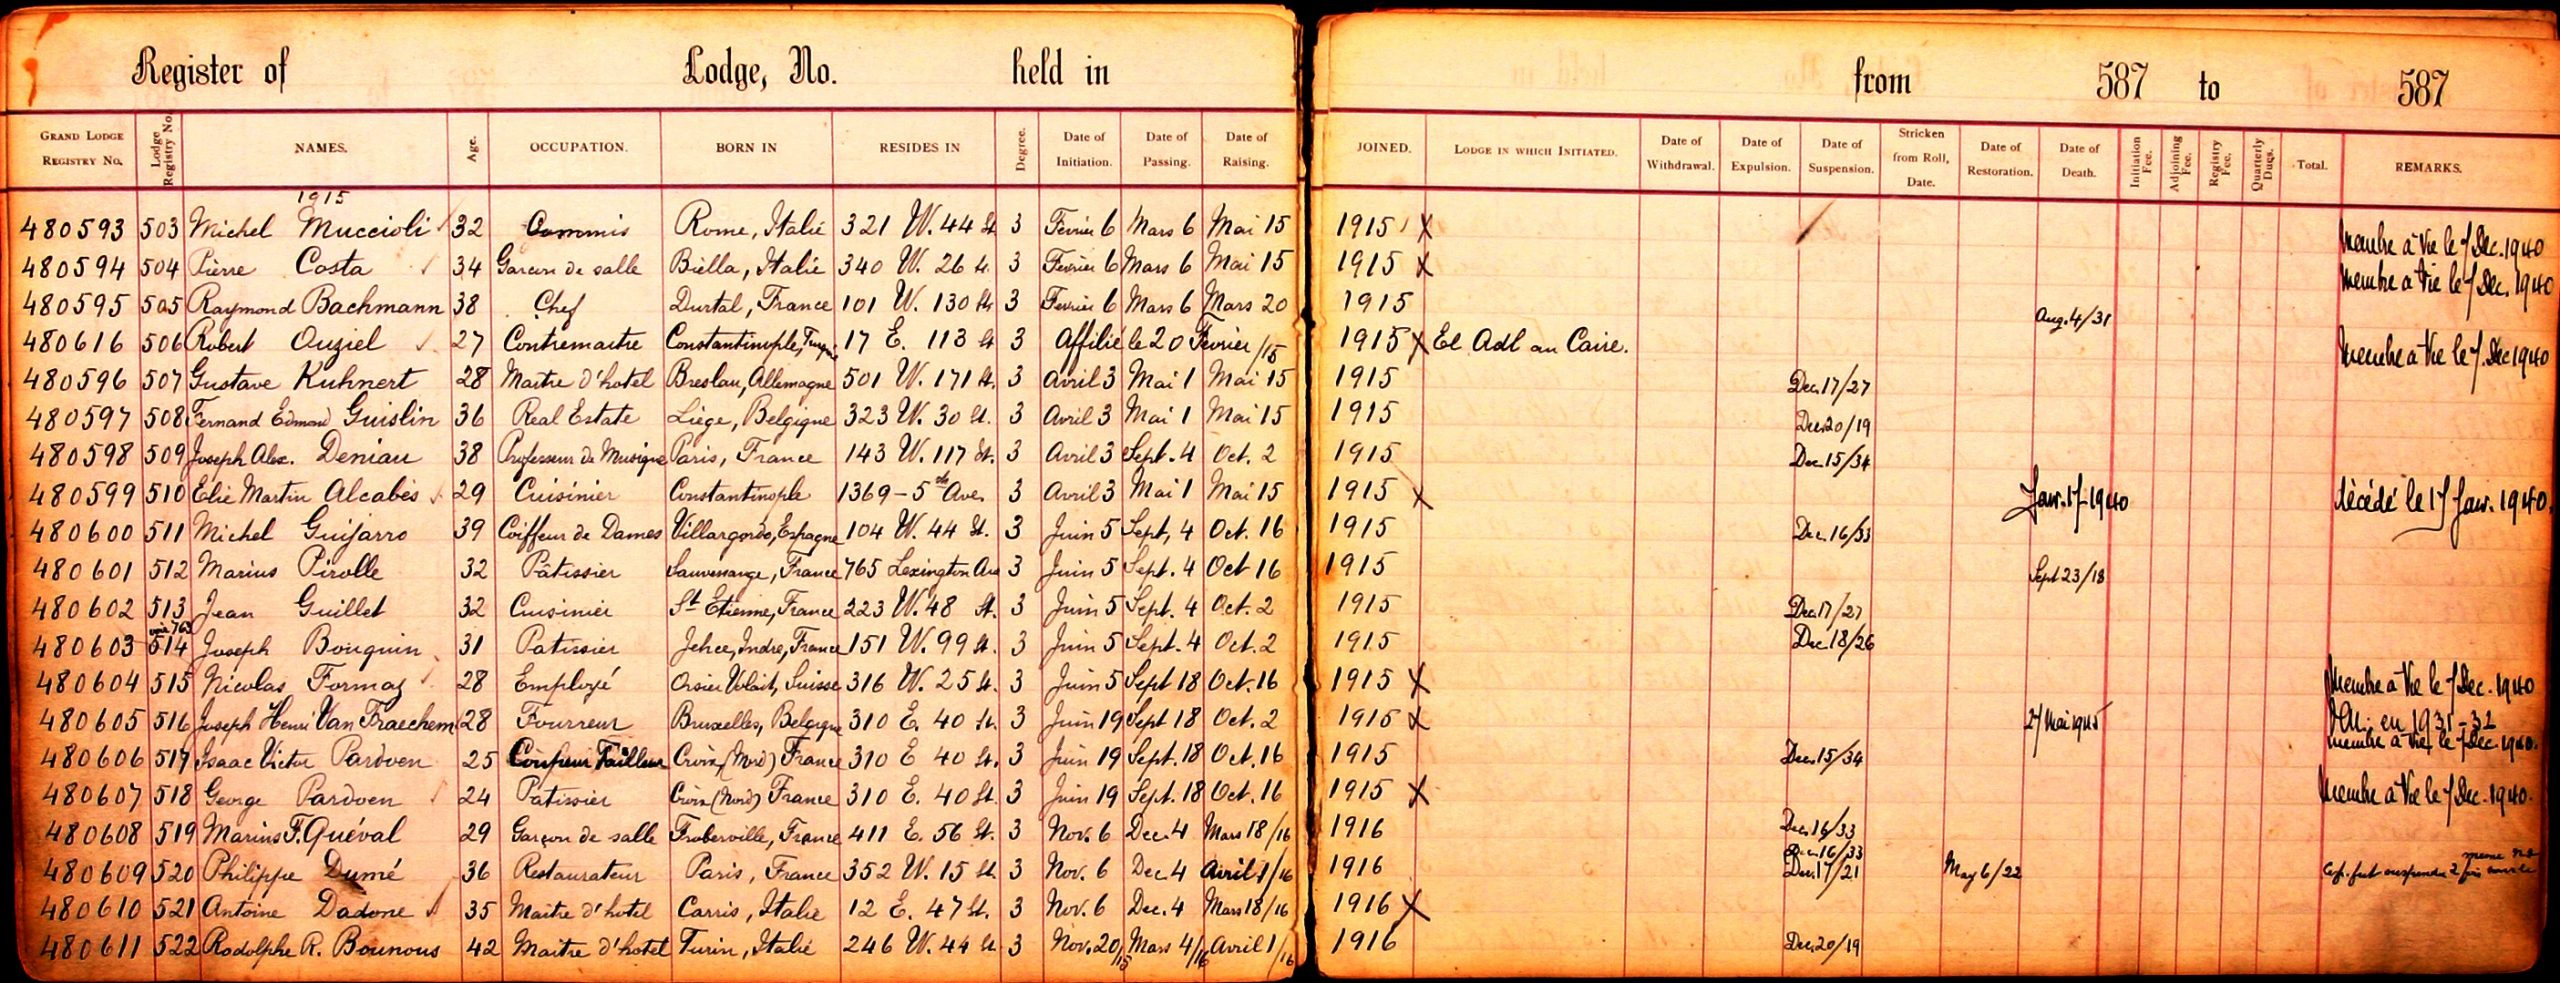 Register of Lodge, No. held in from 587 to 587
GRAND LODGE REGISTRY No. Lodge Registry No. NAMES. Age. OCCUPATION. BORN IN RESIDES IN Degree. Date of Initiation. Date of Passing. Date of Raising. JOINED. LODGE IN WHICH INITIATED. Date of Withdrawal. Date of Expulsion. Date of Suspension. Stricken from Roll, Date. Date of Restoration. Date of Death. Initiation Fee. Adjoining Fee. Registry Fee. Quarterly Dues. Total. REMARKS.
1915
480593 503 Michel Muccioli 32 Commis Rome, Italie 321 W. 44 St 3 Fevrier 6 Mars 6 Mai 15 1915 X Membre à Vie le 7 Dec. 1940
480594 504 Pierre Costa 34 Garcon de salle Biella, Italie 340 W. 26 St. 3 Fevrier 6 Mars 6 Mai 15 1915 X Membre a Vie le 7 Dec. 1940
480595 505 Raymond Bachmann 38 Chef Durtal, France 101 W. 130 St 3 Fevrier 6 Mars 6 Mars 20 1915 Aug. 4/31
480616 506 Robert Ouziel 27 Contremaitre Constantinople, 17 E. 113 St 3 Affilié le 20 Fevrier /15 1915 X El Adl au Caire. Membre a Vie le 7 Dec 1940
480596 507 Gustave Kuhnert 28 Maitre d'hotel Breslau, Allemagne 501 W. 171 St. 3 Avril 3 Mai 1 Mai 15 1915 Dec. 17/27
480597 508 Fernand Edmond Guislin 36 Real Estate Liège, Belgique 323 W. 30 St. 3 Avril 3 Mai 1 Mai 15 1915 Dec. 20/19
480598 509 Joseph Alex. Deniau 38 Professeur de Musique Paris, France 143 W. 117 St. 3 Avril 3 Sept. 4 Oct. 2 1915 Dec. 15/34
480599 510 Elie Martin Alcabès 29 Cuisinier Constantinople 1369 - 5th Ave. 3 Avril 3 Mai 1 Mai 15 1915 X Janv. 17-1940 Décédé le 17 Janv. 1940.
480600 511 Michel Guijarro 39 Coiffeur de Dames Villargordo, Espagne 104 W. 44 St. 3 Juin 5 Sept. 4 Oct. 16 1915 Dec. 16/33
480601 512 Marius Pirolle 32 Patissier France 765 Lexington Ave 3 Juin 5 Sept. 4 Oct 16 1915 Sept 23/18
480602 513 Jean Guillet 32 Cuisinier St Etienne, France 223 W. 48 St. 3 Juin 5 Sept. 4 Oct. 2 1915 Dec. 17/27
voir 763
480603 514 Joseph Bouquin 31 Patissier Indre, France 151 W. 99 St. 3 Juin 5 Sept. 4 Oct. 2 1915 Dec. 18/26
480604 515 Nicolas Formaz 28 Employé Suisse 316 W. 25 St. 3 Juin 5 Sept 18 Oct. 16 1915 X Membre a Vie le 7 Dec. 1940
480605 516 Joseph Henri Van Fraechem 28 Fourreur Bruxelles, Belgique 310 E. 40 St. 3 Juin 19 Sept 18 Oct. 2 1915 X 27 Mai 1945 en 1931-32
membre à Vie le 7 Dec. 1940.
480606 517 Isaac Victor Pardoen 25 Coupeur Tailleur Croix (Nord) France 310 E 40 St. 3 Juin 19 Sept. 18 Oct. 16 1915 Dec. 15/34
480607 518 George Pardoen 24 Patissier Croix (Nord) France 310 E. 40 St. 3 Juin 19 Sept. 18 Oct. 16 1915 X Membre à Vie le 7 Dec. 1940.
480608 519 Marius F. Quéval 29 Garçon de salle Froberville, France 411 E. 56 St. 3 Nov. 6 Dec. 4 Mars 18/16 1916 Dec. 16/33
480609 520 Philippe Dumé 36 Restaurateur Paris, France 352 W. 15 St. 3 Nov. 6 Dec. 4 Avril 1/16 1916 Dec. 16/33 Dec. 17/21 May 6/22 fut suspendu 2 fois
480610 521 Antoine Dadone 35 Maitre d'hotel Carris, Italie 12 E. 47 St. 3 Nov. 6 Dec. 4 Mars 18/16 1916 X
480611 522 Rodolphe R. Bounous 42 Maitre d'hotel Turin, Italie 246 W. 44 St. 3 Nov. 20/15 Mars 4/16 Avril 1/16 1916 Dec. 20/19